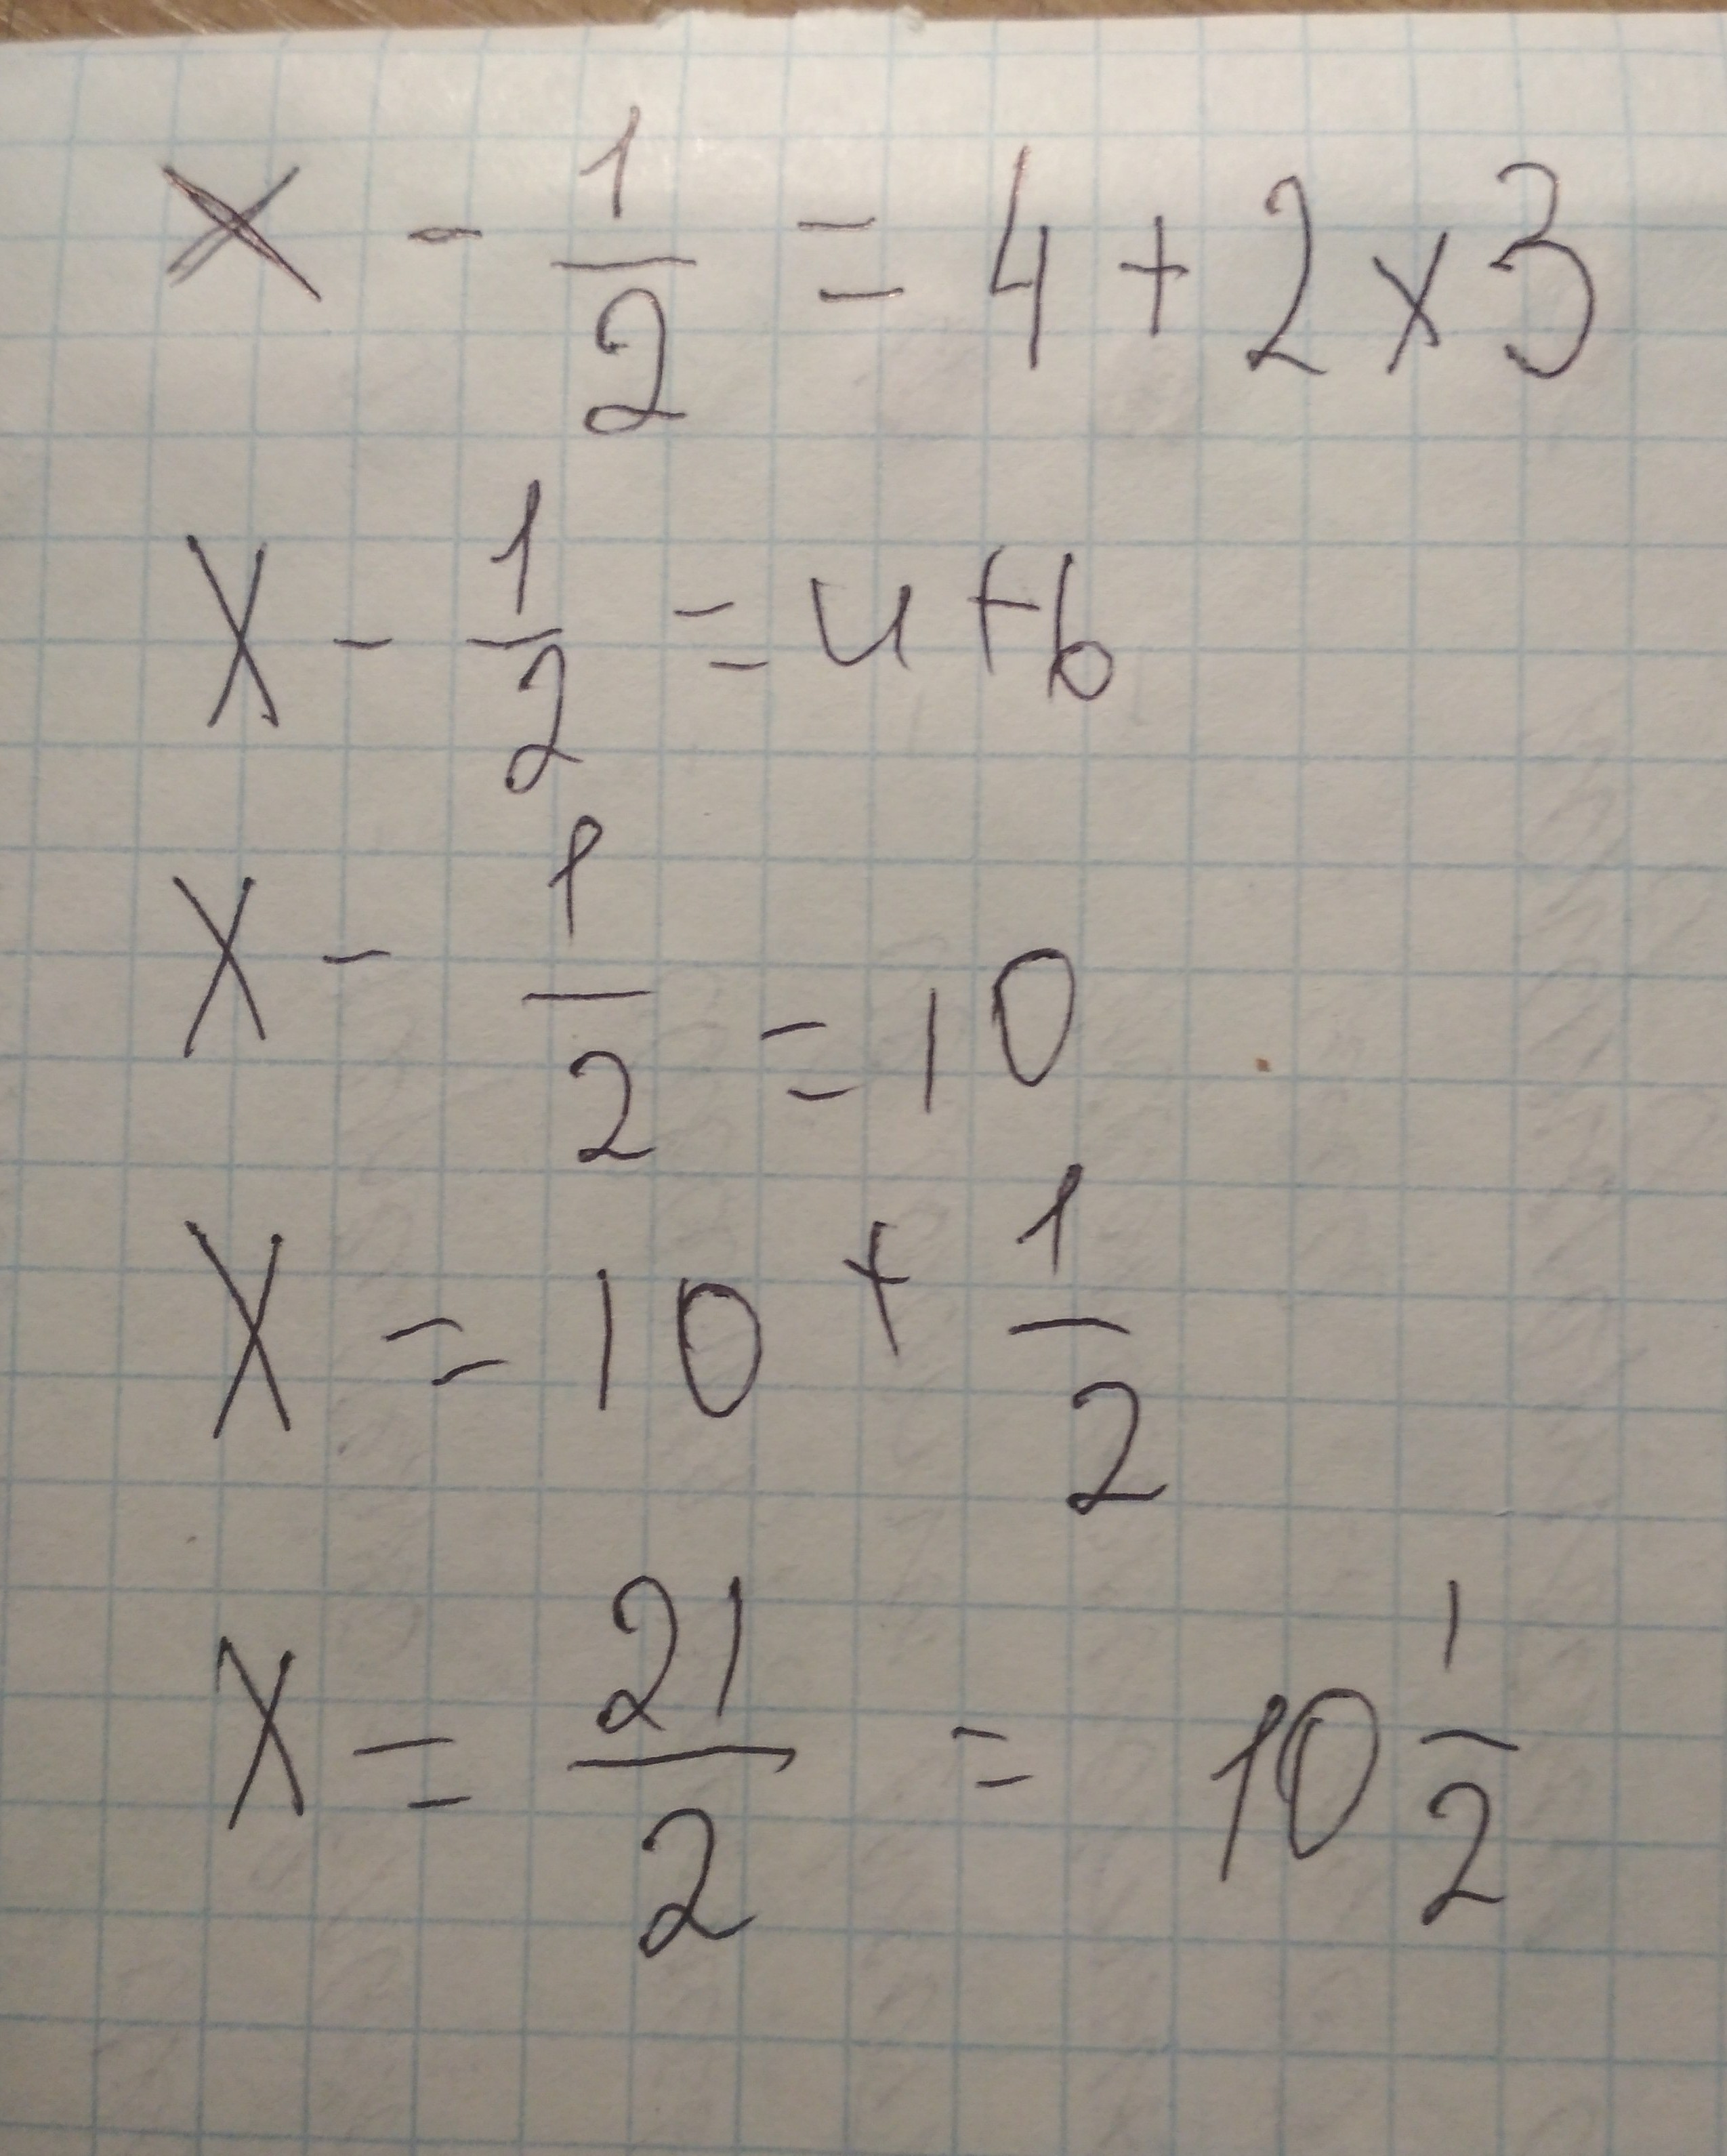 x - 1/2 = 4 + 2 x 3
x - 1/2 = 4 + 6
x - 1/2 = 10
x = 10 + 1/2
x = 21/2 = 10 1/2